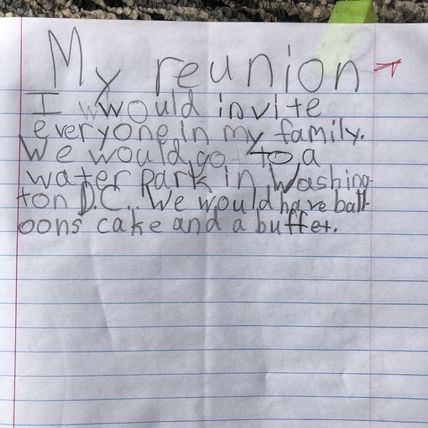 My reunion
I wwould invite
everyone in my family.
We would go to a
water park in Washing-
ton D.C.. We would have ball-
oons cake and a buffet.